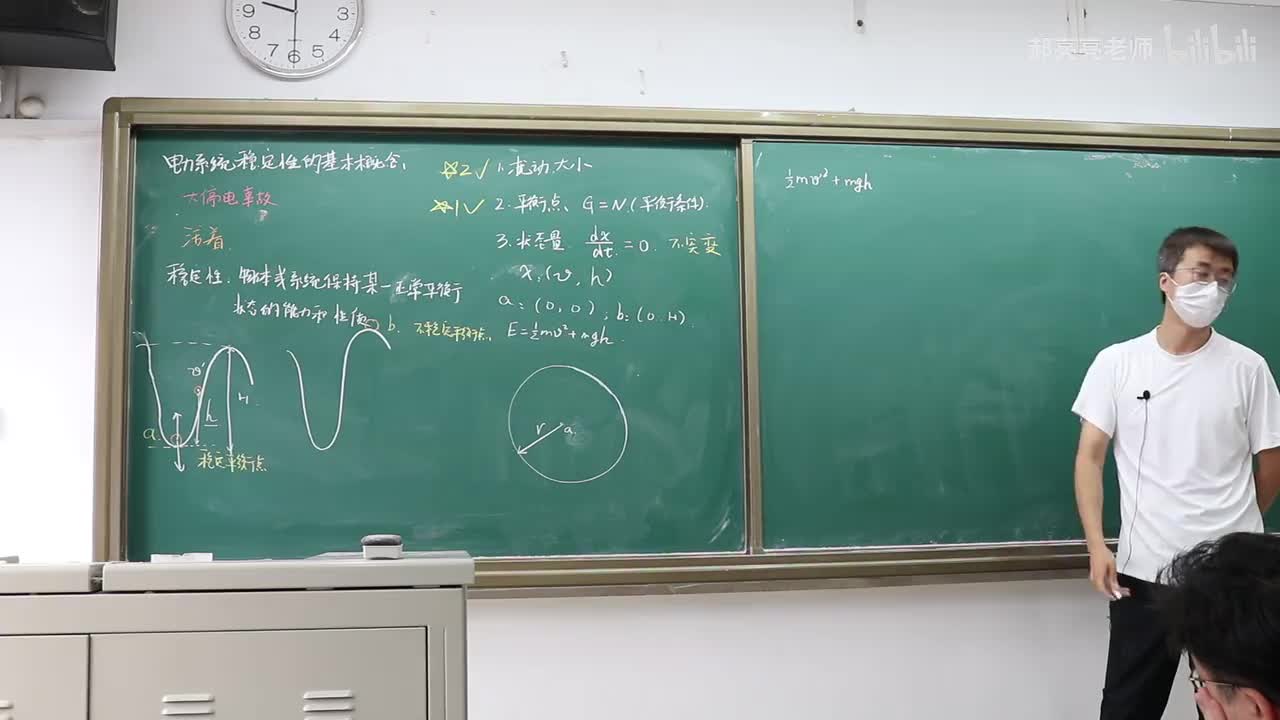 郝亮亮老师 bilibili
9 8 7 6 5 4 3
电力系统稳定性的基本概念、
大停电事故
?
活着.
稳定性. 物体或系统保持某一正常平衡
状态的能力和性质
☆2√ 1. 扰动大小
☆1√ 2. 平衡点、G=N.(平衡条件).
3. 状态量 dx/dt = 0. 不突变
x:(v, h)
a:(0,0); b:(0.H).
E=½mv²+mgh.
b. 不稳定平衡点、
v'
h
H.
a.
稳定平衡点
r a.
½mv'²+mgh